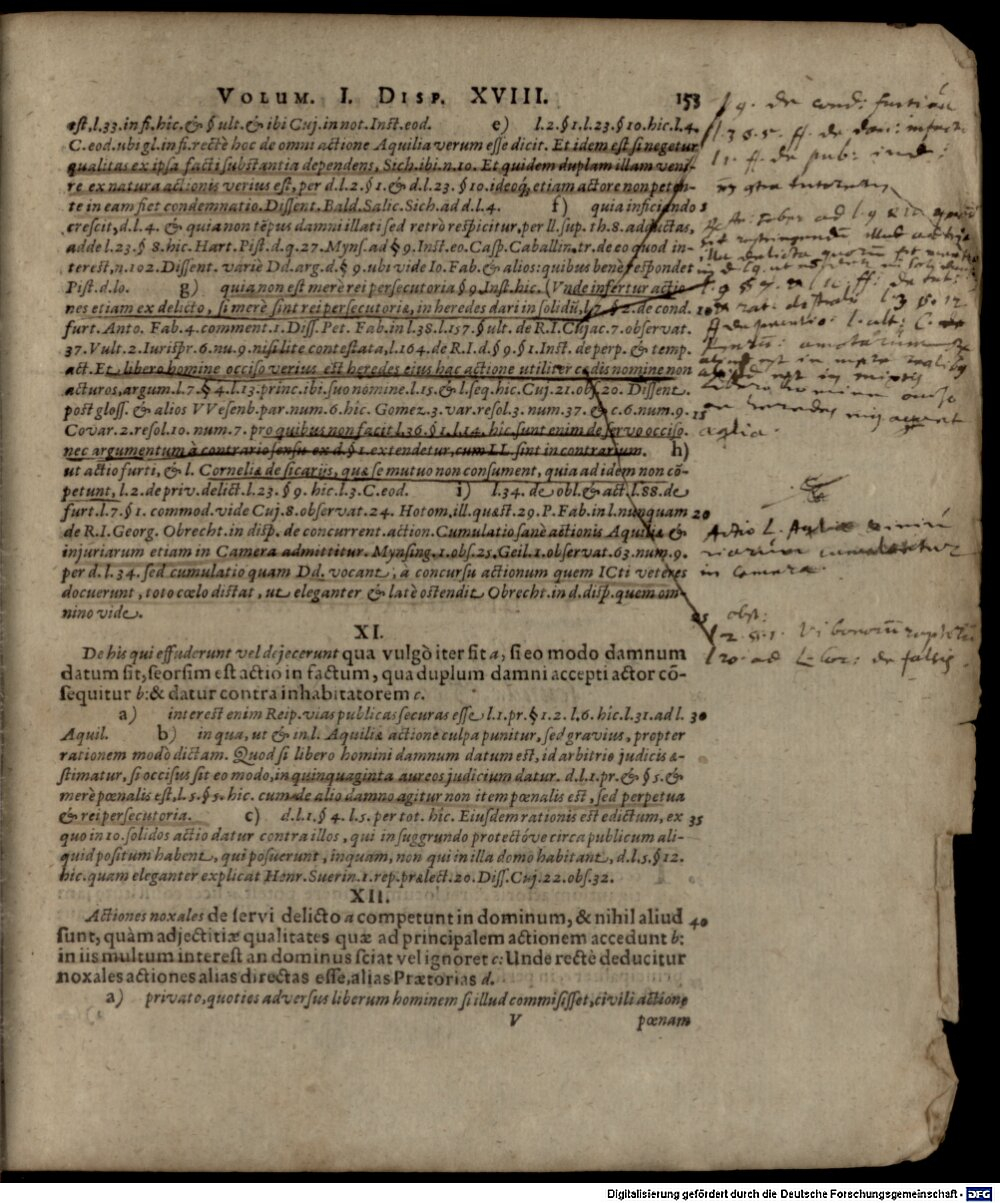 VOLUM. I. DISP. XVIII. 153
est, l.33. in fi. hic. & § ult. & ibi Cuj. in not. Inst. eod. e) l.2. § 1. l.23. § 10. hic. l.4.
C. eod. ubi gl. in fi. rectè hoc de omni actione Aquilia verum esse dicit. Et idem est si negetur
qualitas ex ipsa facti substantia dependens, Sich. ibi. n.10. Et quidem duplam illam veni-
re ex natura actionis verius est, per d. l.2. § 1. & d. l.23. § 10. ideoq; etiam actore non peten-
te in eam fiet condemnatio. Dissent. Bald. Salic. Sich. ad d. l.4. f) quia inficiando 5
crescit, d. l.4. & quia non tēpus damni illati sed retrò respicitur, per ll. sup. th.8. adductas,
adde l.23. § 8. hic. Hart. Pist. d. q.27. Myns. ad § 9. Inst. eo. Casp. Caballin. tr. de eo quod in-
terest, n.102. Dissent. variè Dd. arg. d. § 9. ubi vide Io. Fab. & alios: quibus benè respondet
Pist. d. lo. g) quia non est merè rei persecutoria § 9. Inst. hic. (Vnde infertur actio-
nes etiam ex delicto, si merè sint rei persecutoriæ, in heredes dari in solidū, l.7. § 2. de cond. 10
furt. Anto. Fab. 4. comment. 1. Diss. Pet. Fab. in l.38. l.157. § ult. de R.I. Cujac. 7. observat.
37. Vult. 2. Iurispr. 6. nu. 9. nisi lite contestata, l.164. de R.I. d. § 9. § 1. Inst. de perp. & temp.
act. Et libero homine occiso verius est heredes eius hac actione utiliter cædis nomine non
acturos, argum. l.7. § 4. l.13. princ. ibi. suo nomine. l.15. & l. seq. hic. Cuj. 21. obs. 20. Dissent.
post gloss. & alios VVesenb. par. num. 6. hic. Gomez. 3. var. resol. 3. num. 37. & c.6. num. 9. 15
Covar. 2. resol. 10. num. 7. pro quibus non facit l.36. § 1. l.14. hic. sunt enim de servo occiso.
nec argumentum à contrario sensu ex d. § 1. extendetur, cum LL. sint in contrarium. h)
ut actio furti, & l. Cornelia de sicarijs, quæ se mutuo non consument, quia ad idem non cō-
petunt, l.2. de priv. delict. l.23. § 9. hic. l.3. C. eod. i) l.34. de obl. & act. l.88. de
furt. l.7. § 1. commod. vide Cuj. 8. observat. 24. Hotom. ill. quæst. 29. P. Fab. in l. nunquam 20
de R.I. Georg. Obrecht. in disp. de concurrent. action. Cumulatio sanè actionis Aquiliæ &
injuriarum etiam in Camera admittitur. Mynsing. 1. obs. 25. Geil. 1. observat. 63. num. 9.
per d. l.34. sed cumulatio quam Dd. vocant, à concursu actionum quem ICti veteres
docuerunt, toto cœlo distat, ut eleganter & latè ostendit Obrecht. in d. disp. quem om-
nino vide. 25
XI.
De his qui effuderunt vel dejecerunt qua vulgò iter fit a, si eo modo damnum
datum sit, seorsim est actio in factum, qua duplum damni accepti actor cō-
sequitur b: & datur contra inhabitatorem c.
a) interest enim Reip. vias publicas securas esse, l.1. pr. § 1.2. l.6. hic. l.31. ad l. 30
Aquil. b) in qua, ut & in l. Aquiliæ actione culpa punitur, sed gravius, propter
rationem modò dictam. Quod si libero homini damnum datum est, id arbitrio judicis æ-
stimatur, si occisus sit eo modo, in quinquaginta aureos judicium datur. d. l.1. pr. & § 5. &
merè pœnalis est, l.5. § 5. hic. cum de alio damno agitur non item pœnalis est, sed perpetua
& rei persecutoria. c) d. l.1. § 4. l.5. per tot. hic. Eiusdem rationis est edictum, ex 35
quo in 10. solidos actio datur contra illos, qui in suggrundo protectóve circa publicum ali-
quid positum habent, qui posuerunt, inquam, non qui in illa domo habitant, d. l.5. § 12.
hic. quam eleganter explicat Henr. Suerin. 1. rep. prælect. 20. Diss. Cuj. 22. obs. 32.
XII.
Actiones noxales de servi delicto a competunt in dominum, & nihil aliud 40
sunt, quàm adjectitiæ qualitates quæ ad principalem actionem accedunt b:
in iis multum interest an dominus sciat vel ignoret c: Unde rectè deducitur
noxales actiones alias directas esse, alias Prætorias d.
a) privato, quoties adversus liberum hominem si illud commisisset, civili actione
V pœnam
l 9. de cond: furtiva
Actio L. Aquiliæ
in Camera.
obst:
l 2. § 1. Vi bonorū raptorū
l 20. ad L. Cor: de falsis.
Digitalisierung gefördert durch die Deutsche Forschungsgemeinschaft - DFG